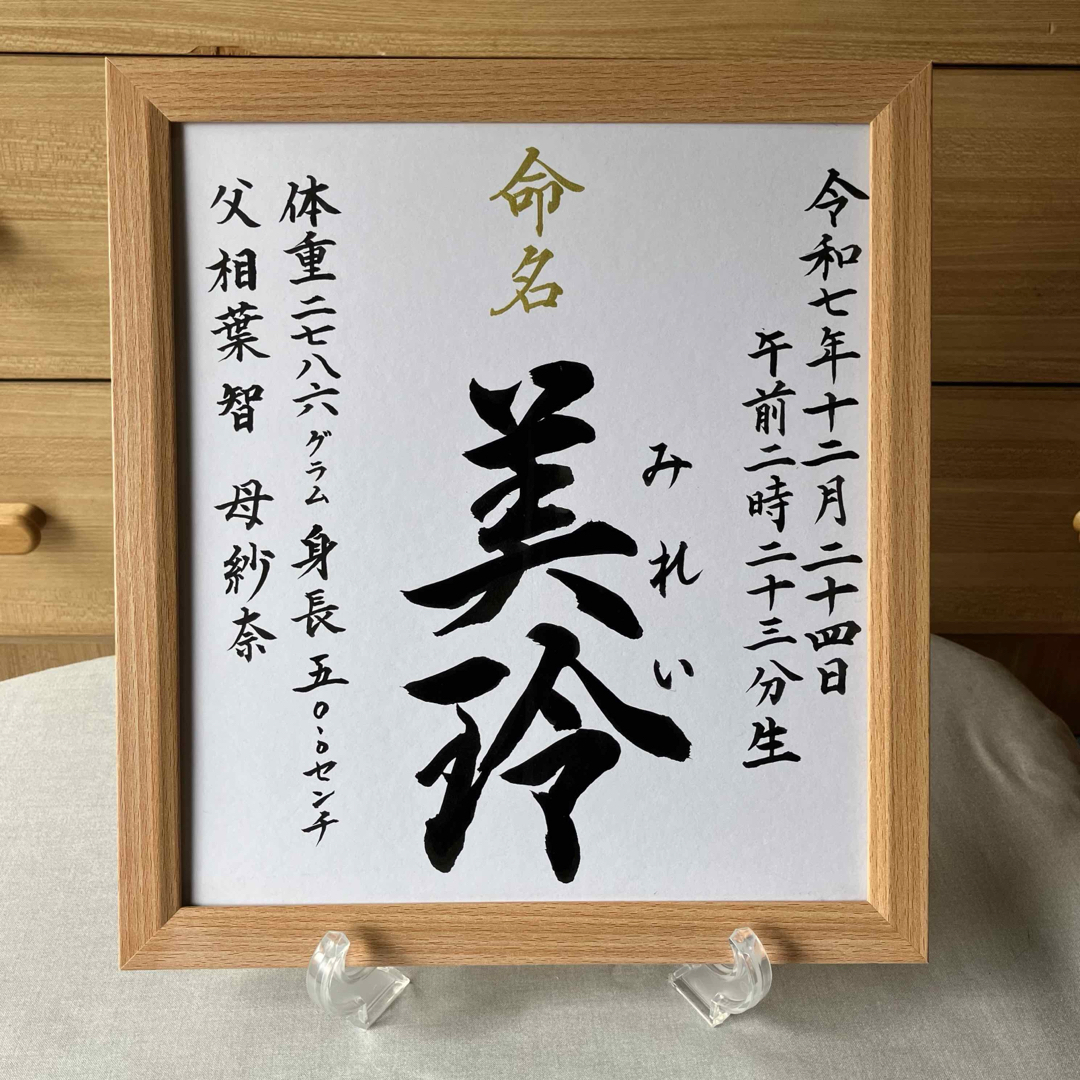 令和七年十二月二十四日
午前二時二十三分生
命名
美玲
みれい
体重二七八六グラム 身長 五〇.〇センチ
父 相葉智 母 紗奈